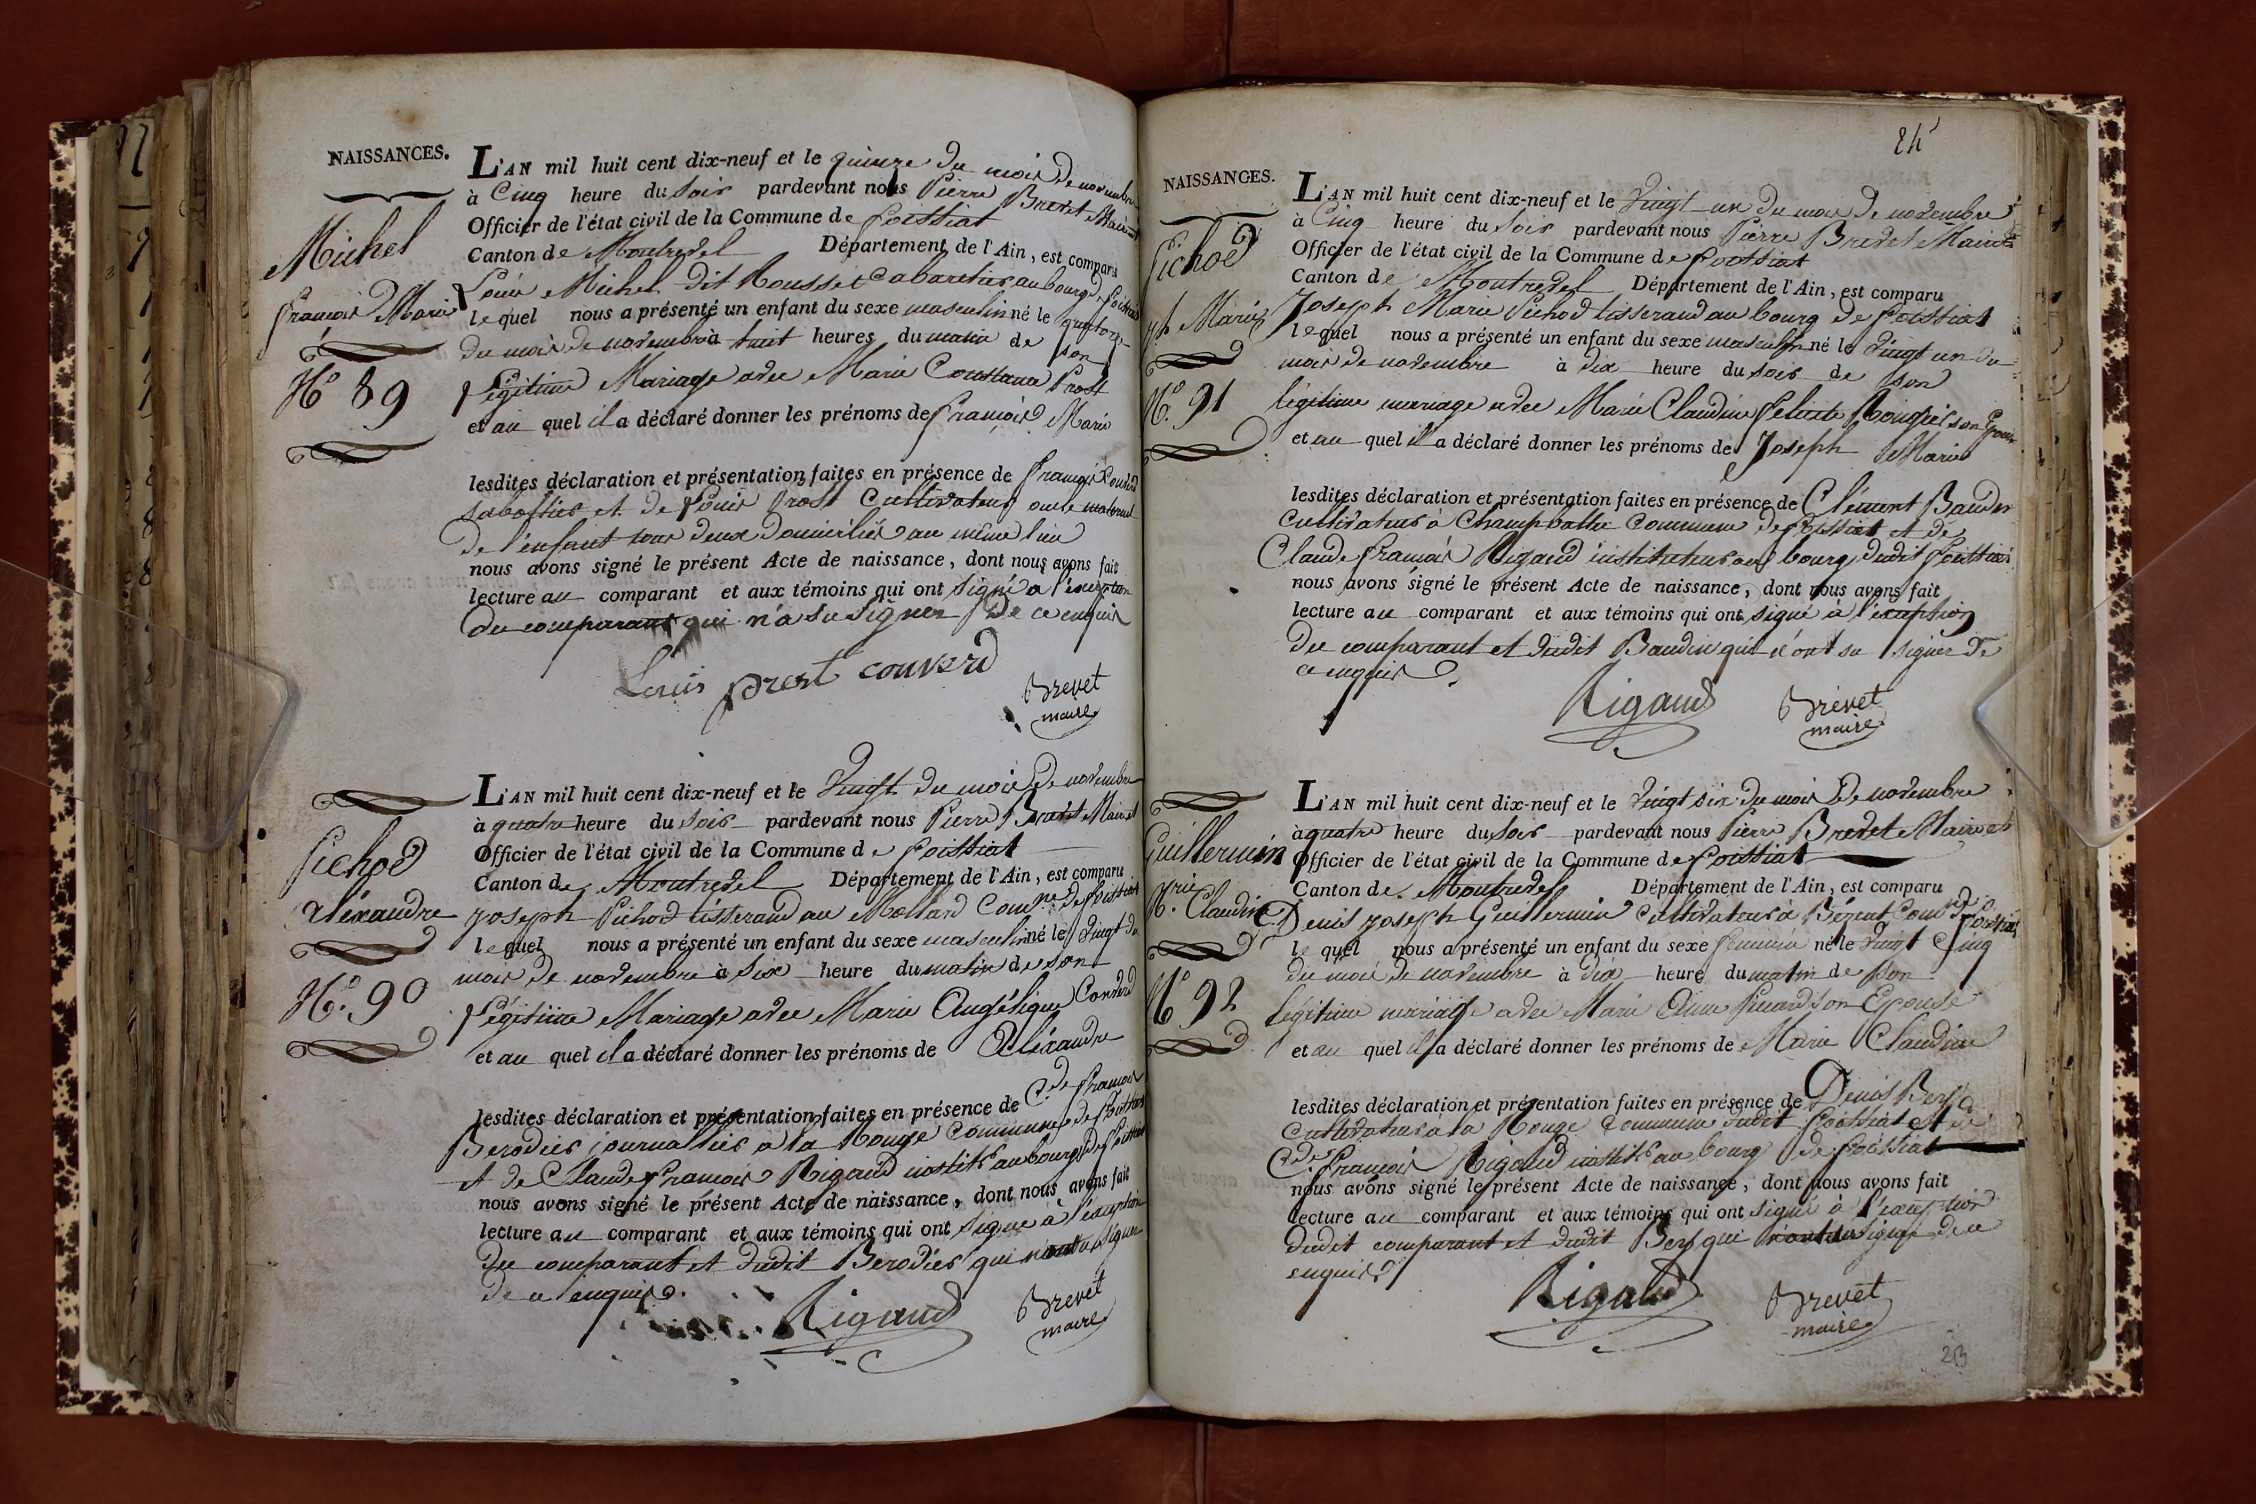 NAISSANCES.
Michel
François Marie
N.º 89
L'AN mil huit cent dix-neuf et le quinze du mois de novembre
à Cinq heure du soir pardevant nous Pierre Brevet Maire et
Officier de l'état civil de la Commune de Foissiat
Canton de Montrevel Département de l'Ain, est comparu
Louis Michel dit Rousset Cabaretier au bourg de Foissiat
lequel nous a présenté un enfant du sexe masculin né le quatorze
du mois de novembre à huit heures du matin de son
légitime Mariage avec Marie Constance Prost
et au quel il a déclaré donner les prénoms de François Marie
lesdites déclaration et présentation faites en présence de François Couverd
sabottier et de Louis Prost Cultivateur oncle maternel
de l'enfant tous deux domiciliés au même lieu
nous avons signé le présent Acte de naissance, dont nous avons fait
lecture au comparant et aux témoins qui ont signé a l'exception
du comparant qui n'a su signer de ce enquis
Louis prost couverd
Brevet
maire
Pichod
alexandre
N.º 90
L'AN mil huit cent dix-neuf et le Vingt du mois de novembre
à quatre heure du soir pardevant nous Pierre Brevet Maire et
Officier de l'état civil de la Commune de Foissiat
Canton de Montrevel Département de l'Ain, est comparu
joseph Pichod tisserand au Mollard Comne de Foissiat
lequel nous a présenté un enfant du sexe masculin né le Vingt du
mois de novembre à six heure du matin de son
légitime Mariage avec Marie Angélique Couverd
et au quel il a déclaré donner les prénoms de Aléxandre
lesdites déclaration et présentation faites en présence de C.de François
Berodier journallier a la Rouge Commune de Foissiat
et de Claude François Rigaud instit.r au bourg de Foissiat
nous avons signé le présent Acte de naissance, dont nous avons fait
lecture au comparant et aux témoins qui ont signé à l'exception
du comparant et dudit Berodier qui n'ont su signer
de ce enquis.
Rigaud
Brevet
maire
84
NAISSANCES.
Pichod
jh Marie
N.º 91
L'AN mil huit cent dix-neuf et le Vingt un du mois de novembre
à Cinq heure du soir pardevant nous Pierre Brevet Maire et
Officier de l'état civil de la Commune de Foissiat
Canton de Montrevel Département de l'Ain, est comparu
Joseph Marie Pichod tisserand au bourg de Foissiat
lequel nous a présenté un enfant du sexe masculin né le Vingt un du
mois de novembre à dix heure du soir de son
légitime mariage avec Marie Claudine Felicité son Epouse
et au quel il a déclaré donner les prénoms de Joseph Marie
lesdites déclaration et présentation faites en présence de Clement Baudin
Cultivateur à Commune de Foissiat et de
Claude François Rigaud instituteur au bourg dudit Foissiat
nous avons signé le présent Acte de naissance, dont nous avons fait
lecture au comparant et aux témoins qui ont signé à l'exception
du comparant et dudit Baudin qui n'ont su signer de
ce enquis.
Rigaud
Brevet
maire
Guillermin
M.rie Claudine
N.º 92
L'AN mil huit cent dix-neuf et le Vingt six du mois de novembre
à quatre heure du soir pardevant nous Pierre Brevet Maire et
Officier de l'état civil de la Commune de Foissiat
Canton de Montrevel Département de l'Ain, est comparu
Denis joseph Guillermin Cultivateur à Com.ne de Foissiat
le quel nous a présenté un enfant du sexe féminin né le Vingt Cinq
du mois de novembre à dix heure du matin de son
légitime mariage avec Marie son Epouse
et au quel il a déclaré donner les prénoms de Marie Claudine
lesdites déclaration et présentation faites en présence de Denis
Cultivateur à la Rouge Commune dudit Foissiat et de
C.de François Rigaud instit.r au bourg de Foissiat
nous avons signé le présent Acte de naissance, dont nous avons fait
lecture au comparant et aux témoins qui ont signé à l'exception
dudit comparant et dudit qui n'ont su signé de ce
enquis
Rigaud
Brevet
maire